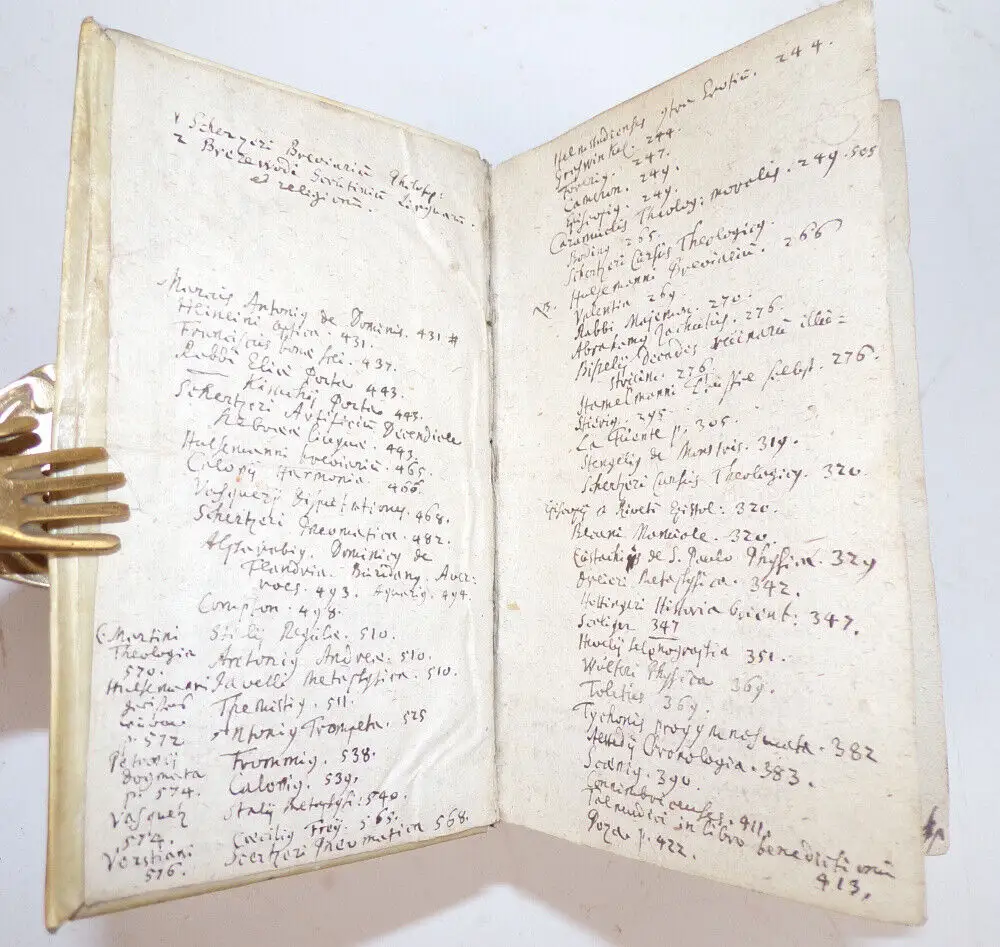 1 Scherzeri Breviarium Philosoph:
2 Brerewodi Scrutinium Linguarum
et religionum.
Marcus Antonius de Dominis. 431 #
Heinlini optica. 431.
Franciscus bonae spei. 437.
Rabbi Elia 443.
Kimchij 443.
Schertzeri Artificium Decendiale
Linguae. 443.
Hulsemanni breviarium. 465.
Calovij Harmonia. 466.
Vasquezij Disputationes. 468.
Schertzeri Pneumatica. 482.
Dominicus de
Flandria. Buridanus. Aver-
roes. 493. Aquarius. 494.
Compton. 498.
Stalij Regulae. 510.
Antonius Andreae. 510.
Javelli Metaphysica. 510.
Themistius. 511.
Antonius Trompeta. 525
Frommius. 538.
Calovius. 539.
Stalij Metaphys: 540.
Caecilius Frey. 565.
Scertzeri Pneumatica 568.
Martini
Theologia
570.
Hulsemanni
p. 572
Petavij
dogmata
p. 574.
Vasquez
574.
Vorstiani
576.
Helmstadiensis 244.
Graswinkel. 244.
247.
Cameron. 249.
Episcopius. 249.
Caramuelis Theolog: moralis. 249. 505
Bodinus 265.
Schertzeri Cursus Theologicus
NB. Hulsemanni Breviarium. 266
Valentia 269
Rabbi Majemon. 270.
Abrahamus Zachutus. 276.
Decades
276.
Hamelmanni selbst. 276.
295
La Fuente p. 305.
Stengelius de Monstris. 319.
Schertzeri Cursus Theologicus. 320
Episcopij a Riveti Epistol: 320.
Becani Manuale. 320.
Eustachius de S. Paulo Physica. 329
Metaphysica. 342.
Hottingeri Historia orient: 347.
Scaliger 347
Hevelij Selenographia 351.
Physica 369.
Toletus 369.
Tychonis progymnasmata. 382
Chronologia. 383.
390.
411.
Talmudici in libro benedictionum
413.
p. 422.